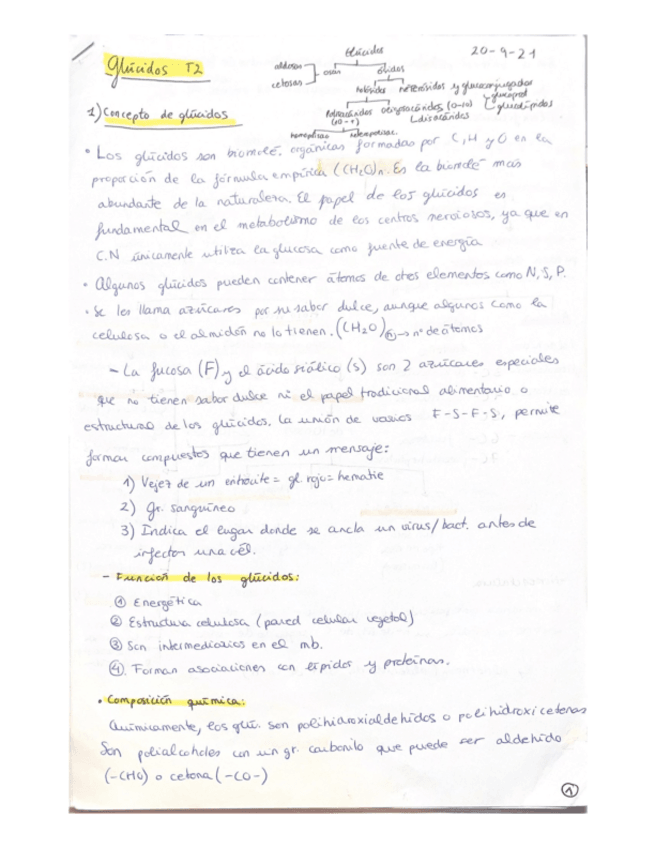 Glúcidos T2
20-9-21
Glúcidos
aldosas
cetosas
osas
ósidos
holósidos heterósidos y glucoconjugados
glucoprot
glucolípidos
Polisacáridos oligosacáridos (0-10)
(10-+) Disacáridos
homopolisac
1) Concepto de glúcidos
• Los glúcidos son biomolé. orgánicas formadas por C, H y O en la
proporción de la fórmula empírica (CH2O)n. Es la biomolé más
abundante de la naturaleza. El papel de los glúcidos es
fundamental en el metabolismo de los centros nerviosos, ya que en
C.N únicamente utiliza la glucosa como fuente de energía
• Algunos glúcidos pueden contener átomos de otros elementos como N, S, P.
• Se les llama azúcares por su sabor dulce, aunque algunos como la
celulosa o el almidón no lo tienen. (CH2O)n → nº de átomos
- La fucosa (F) y el ácido siálico (s) son 2 azúcares especiales
que no tienen sabor dulce ni el papel tradicional alimentario o
estructural de los glúcidos. La unión de varios F-S-F-S, permite
formar compuestos que tienen un mensaje:
1) Vejez de un eritrocite = gl. rojo = hematie
2) Gr. sanguíneo
3) Indica el lugar donde se ancla un virus/bact. antes de
infectar una cél.
- Función de los glúcidos:
① Energética
② Estructura celulosa (pared celular vegetal)
③ Son intermediarios en el mb.
④ Forman asociaciones con lípidos y proteínas.
• Composición química:
Químicamente, los glú. son polihidroxialdehídos o polihidroxicetonas
Son polialcoholes con un gr. carbonilo que puede ser aldehído
(-CHO) o cetona (-CO-)
①